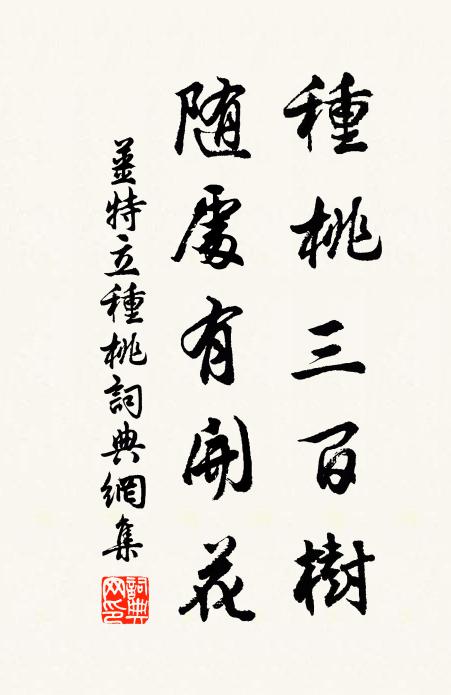 種桃三百樹
随處有開花
姜特立種桃詞典網集
詞典網印